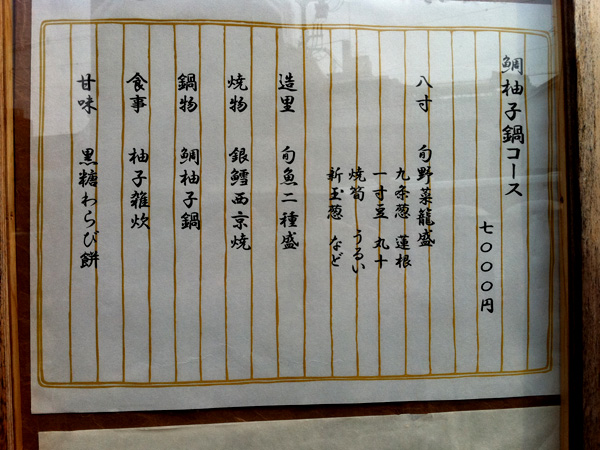 鯛柚子鍋コース
七〇〇〇円
八寸 旬野菜籠盛
九条葱 蓮根
一寸豆 丸十
焼筍 うるい
新玉葱 など
造里 旬魚二種盛
焼物 銀鱈西京焼
鍋物 鯛柚子鍋
食事 柚子雑炊
甘味 黒糖わらび餅